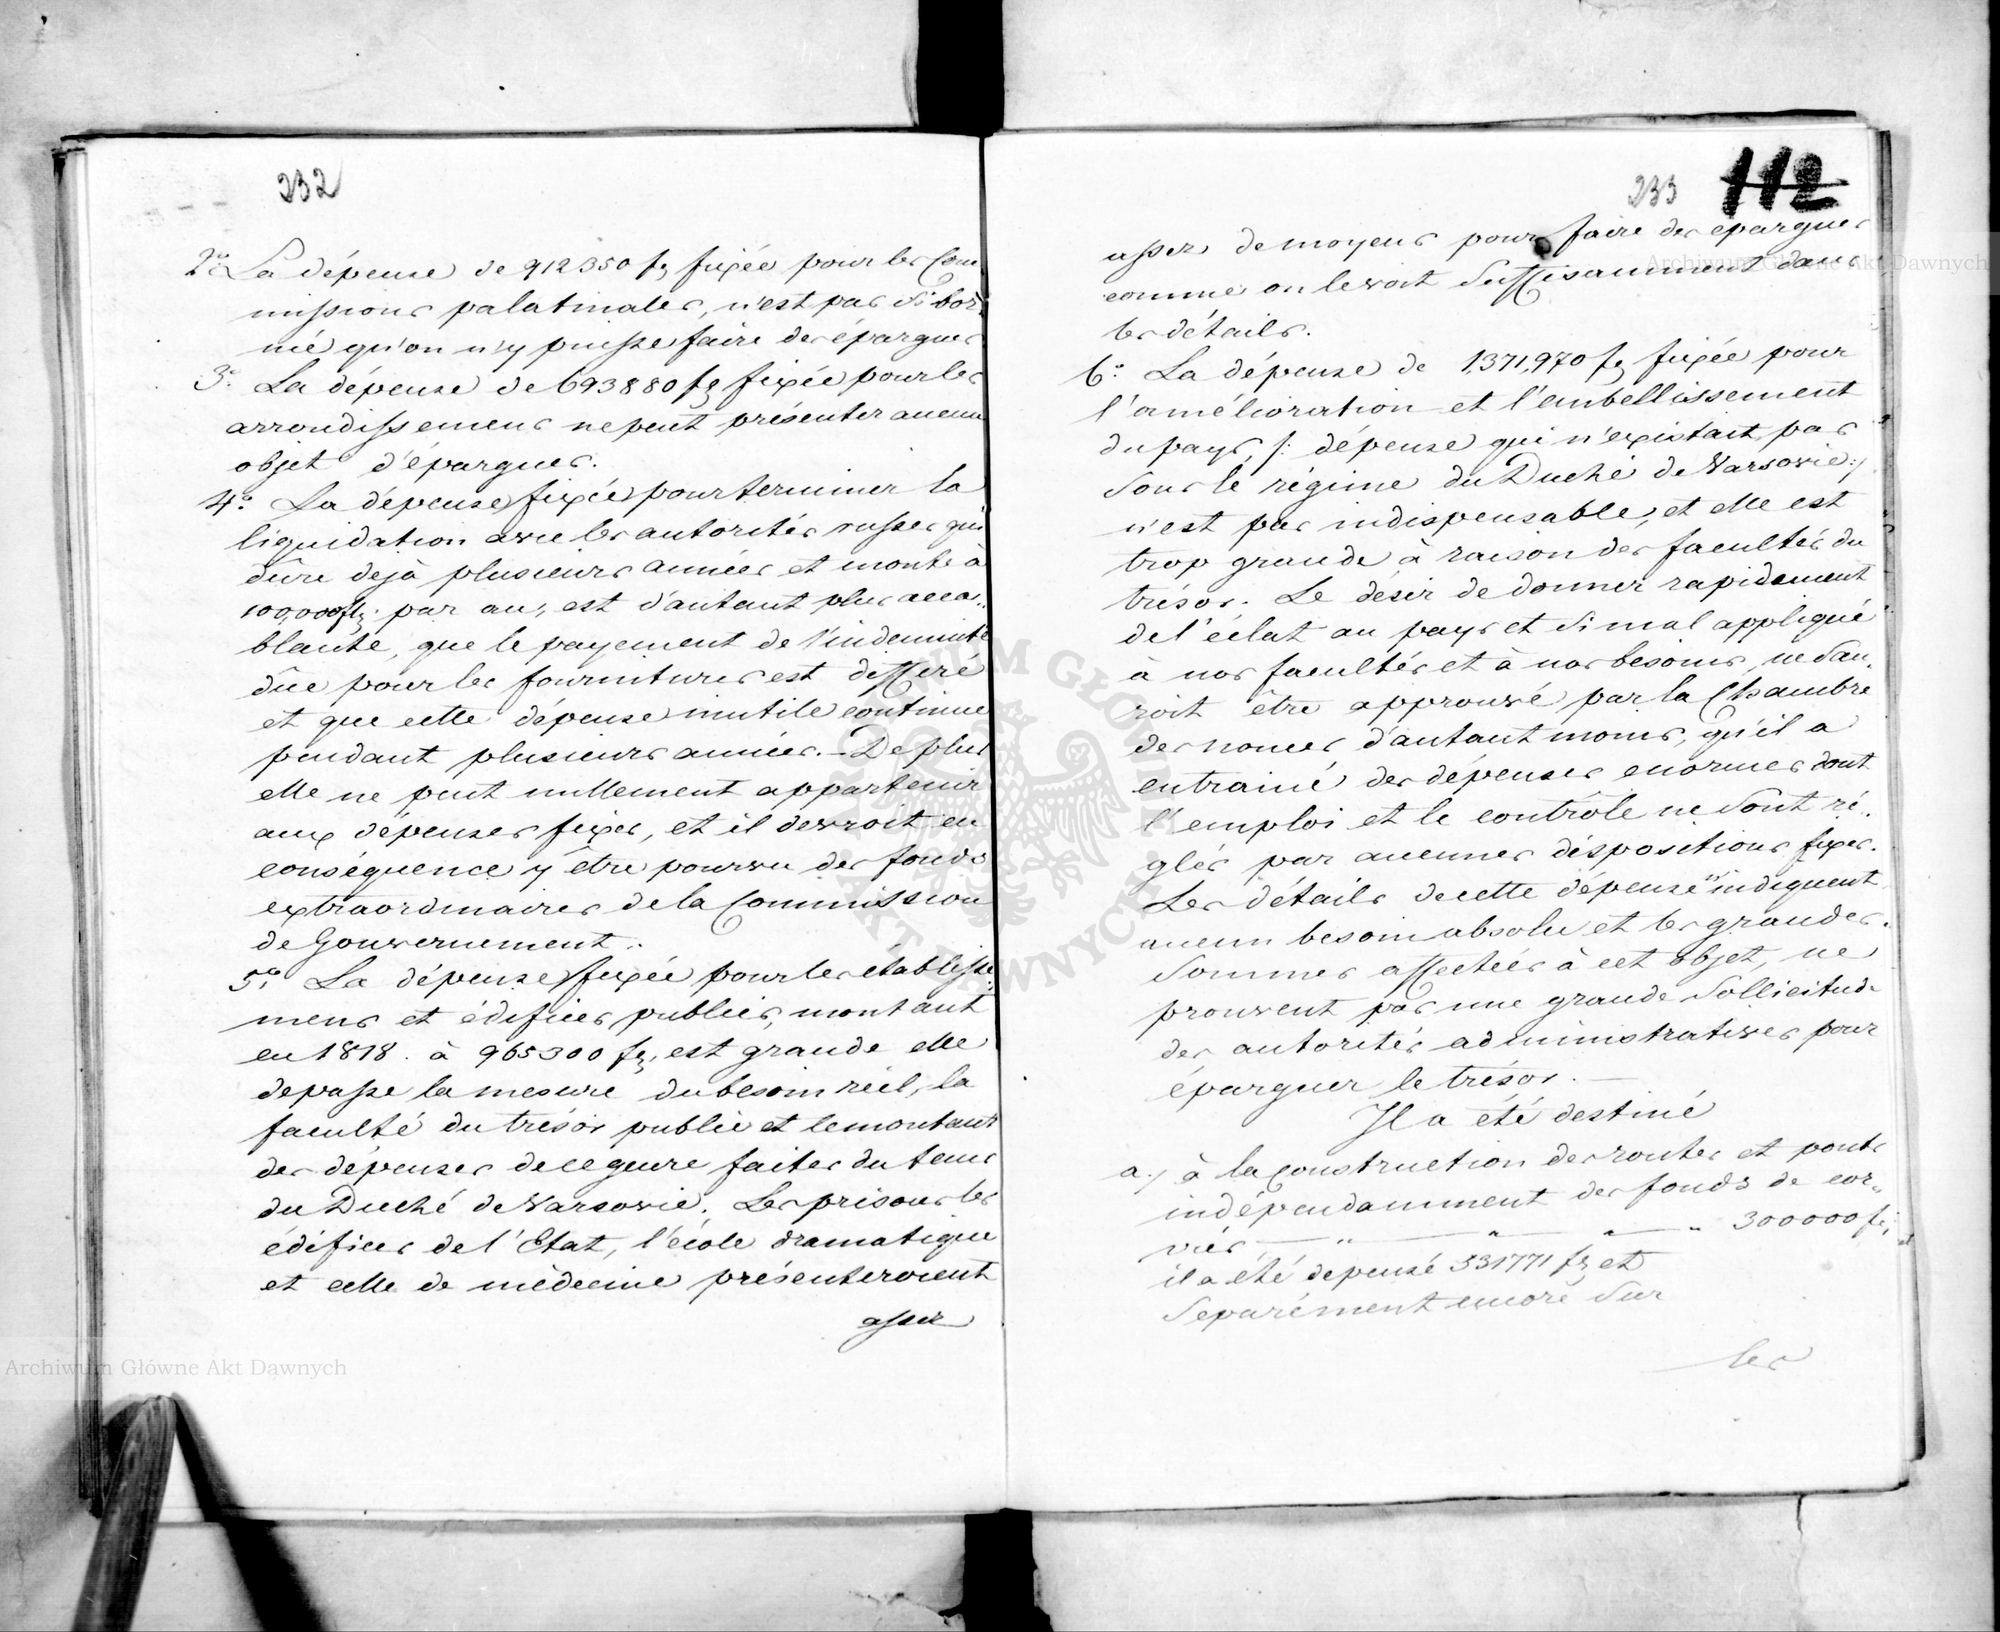 232
2.° La dépense de 912350 fl fixée pour les Com
missions palatinales, n'est pas si bor,
né qu'on n'y puisse faire des épargnes
3.° La dépense de 693880 fl fixée pour les
arrondissemens ne peut présenter aucun
objet d'épargnes.
4.° La dépense fixée pour terminer la
liquidation avec les autorités russes qui
dure dejà plusieurs années et monte à
100,000 fl. par an, est d'autant plus acca„
blante, que le payement de l'indemnité
dûe pour les fournitures est differé
et que cette dépense inutile continue
pendant plusieurs années. — De plus
elle ne peut nullement appartenir
aux dépenses fixes, et il devroit en
conséquence y être pourvu des fonds
extraordinaires de la Commission
de Gouvernement.
5.° La dépense fixée pour les établisse
mens et édifices publics, montant
en 1818. à 965300 fl, est grande elle
depasse la mesure du besoin réel, la
faculté du trésor public et le montant
des dépenses de ce genre faites du tems
du Duché de Varsovie. Les prisons les
édifices de l'Etat, l'école dramatique
et celle de médecine présenteroient
assez
233 112
assez de moyens pour faire des epargnes
comme on le voit suffisamment dans
les détails.
6.° La dépense de 1,371,970 fl fixée pour
l'amélioration et l'embellissement
du pays, /: dépense qui n'existait pas
sous le régime du Duché de Varsovie :/
n'est pas indispensable, et elle est
trop grande à raison des facultés du
trésor. Le désir de donner rapidement
de l'éclat au pays et si mal appliqué
à nos facultés et à nos besoins, ne sau„
roit être approuvé par la Chambre
des nonces d'autant moins, qu'il a
entrainé des dépenses enormes dont
l'emploi et le contrôle ne sont ré„
glés par aucunes dispositions fixes.
Les détails de cette dépense n'indiquent
aucun besoin absolu et les grandes
sommes affectées à cet objet, ne
prouvent pas une grande sollicitude
des autorités administratives pour
épargner le trésor. —
Il a été destiné
a./ à la construction des routes et ponts
indépendamment des fonds de cor„
vées — „ — „ — „ — „ 300000 fl;
il a été depensé 531771 fl et
separément encore sur
les
Archiwum Główne Akt Dawnych
Archiwum Główne Akt Dawnych
ARCHIWUM GŁÓWNE AKT DAWNYCH